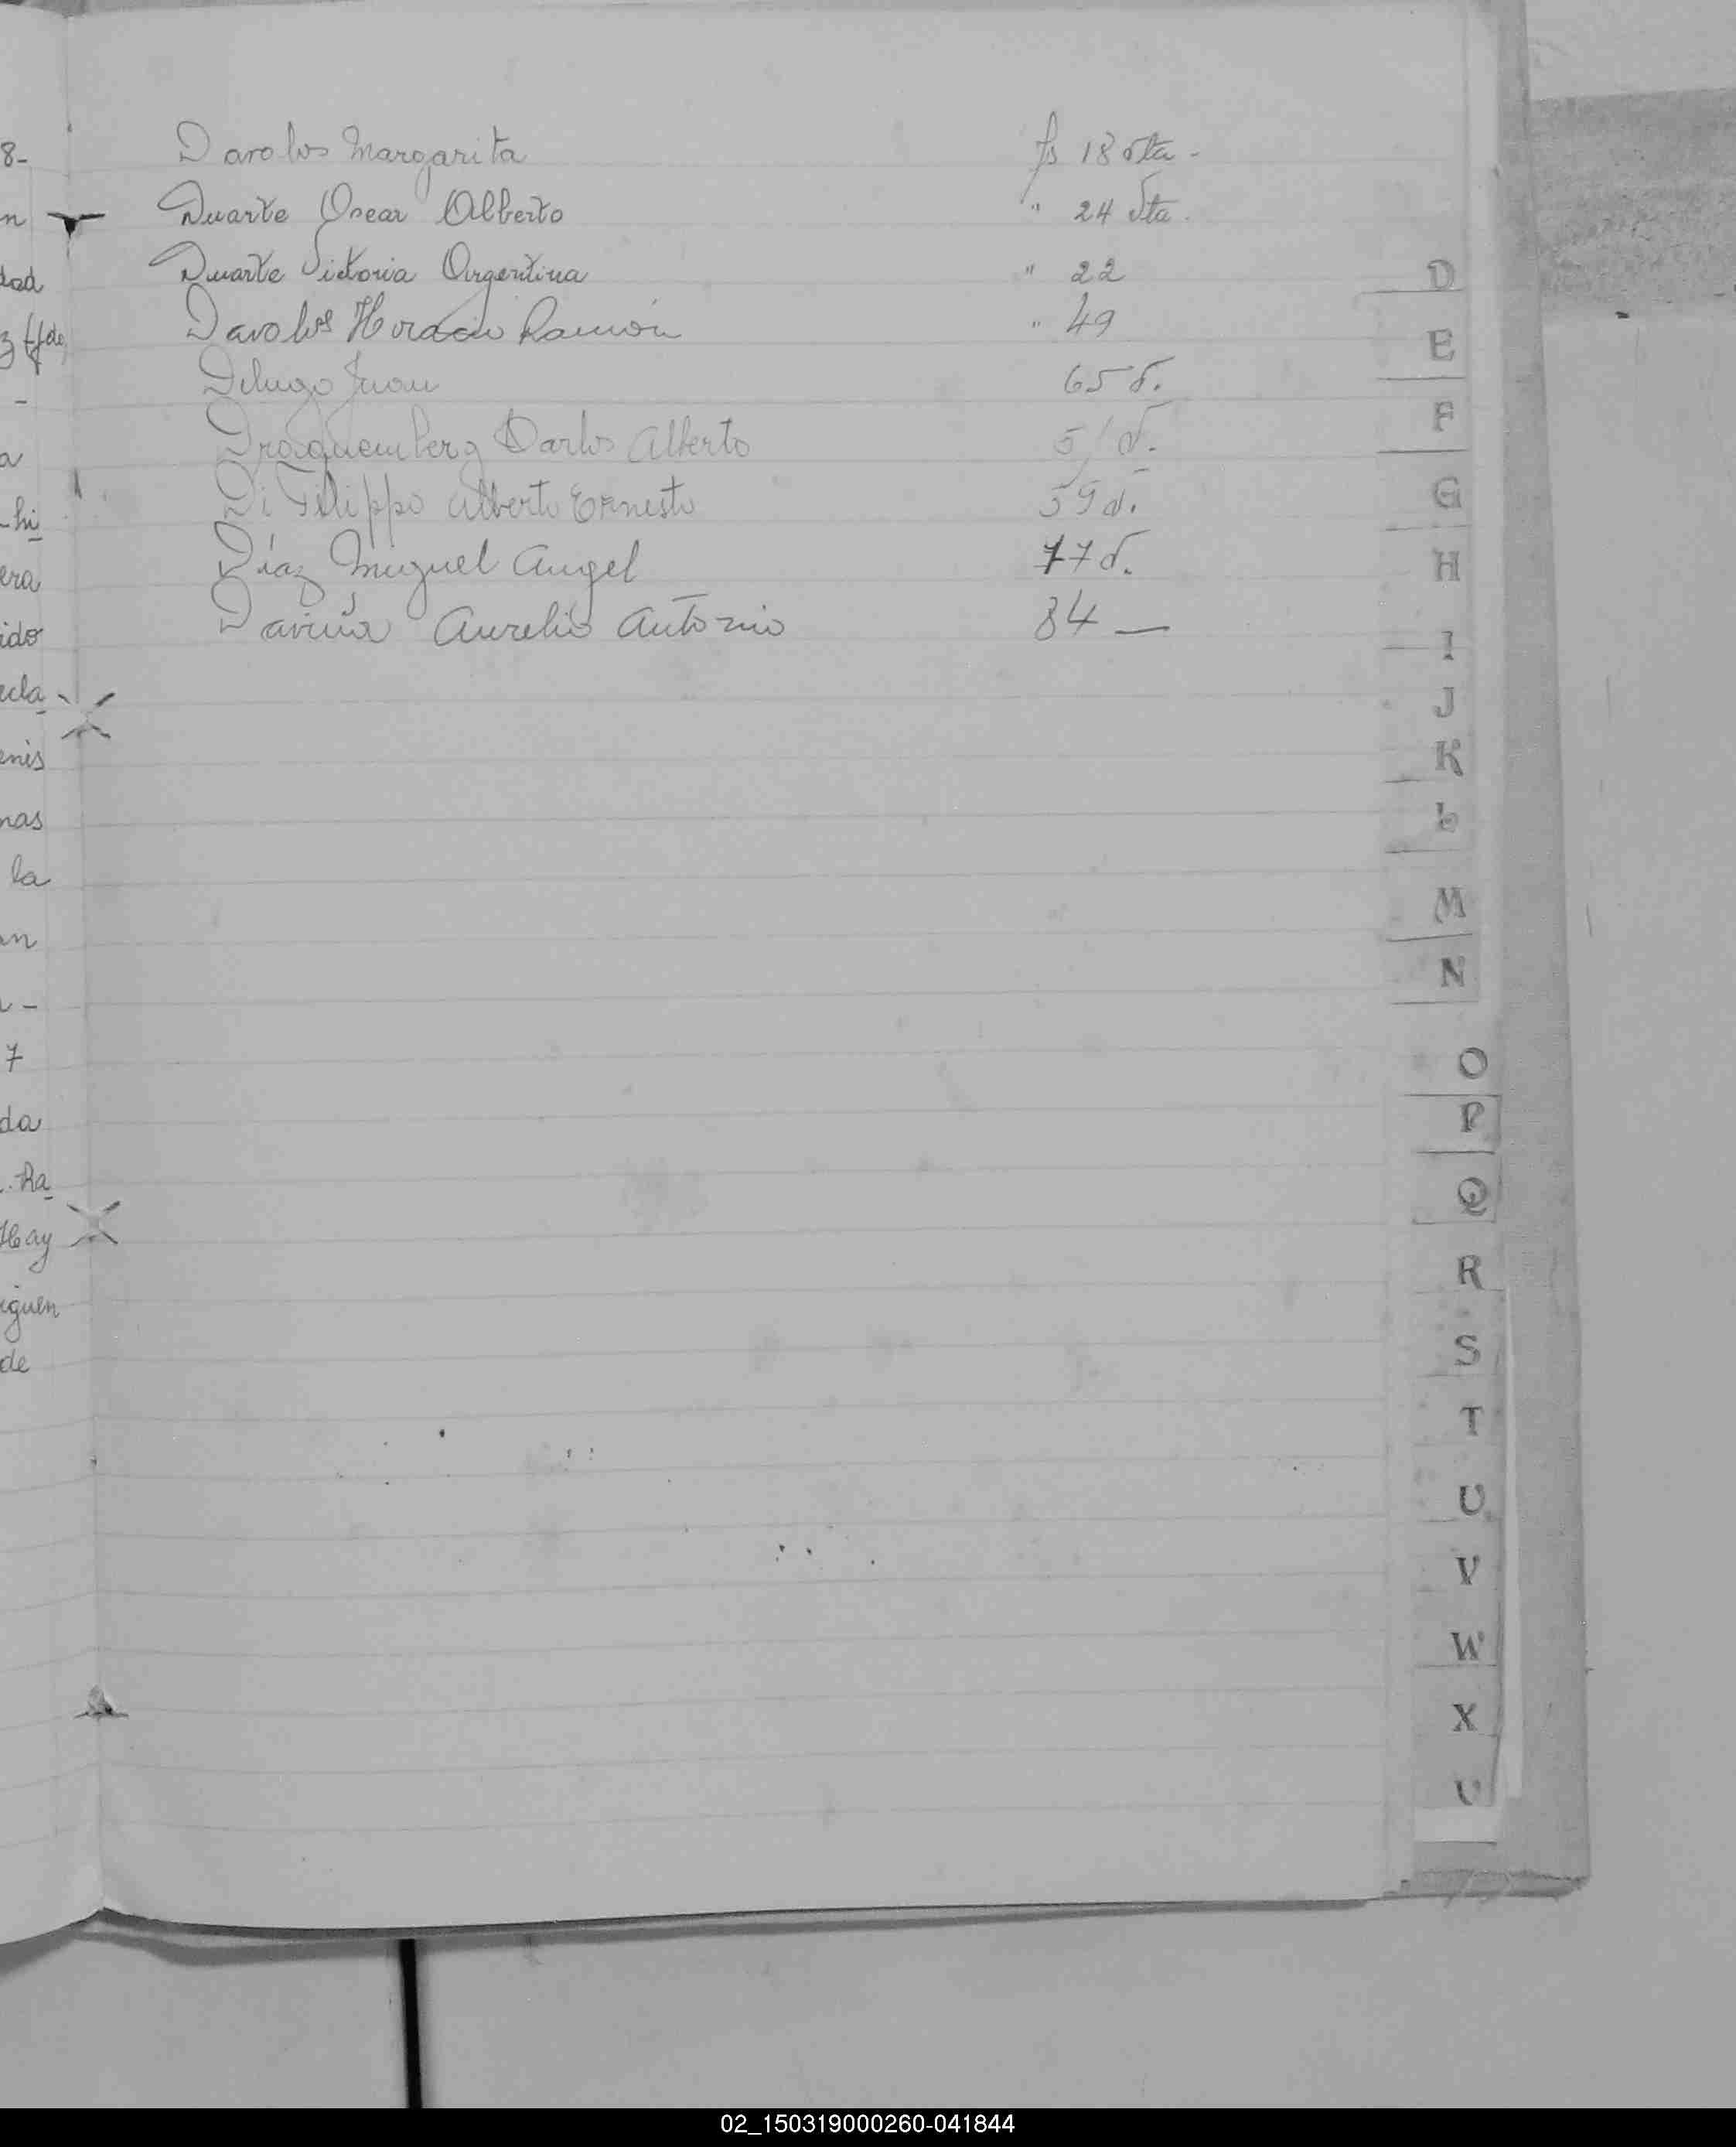 Davolos Margarita fs 18 vta -
Duarte Oscar Alberto " 24 vta.
Duarte Victoria Argentina " 22
Davolos Horacio Ramón " 49
Delugo Juan 65 v.
Carlos Alberto 51 v.
Di Filippo Alberto Ernesto 59 v.
Díaz Miguel Angel 77 v.
Daviña Aurelio Antonio 84 —
8-
n
dad
-
a
-hi
era
ido
cla
enis
nas
la
an
-
7
da
Ra
Hay
iguen
de
D
E
F
G
H
I
J
K
L
M
N
O
P
Q
R
S
T
U
V
W
X
02_150319000260-041844